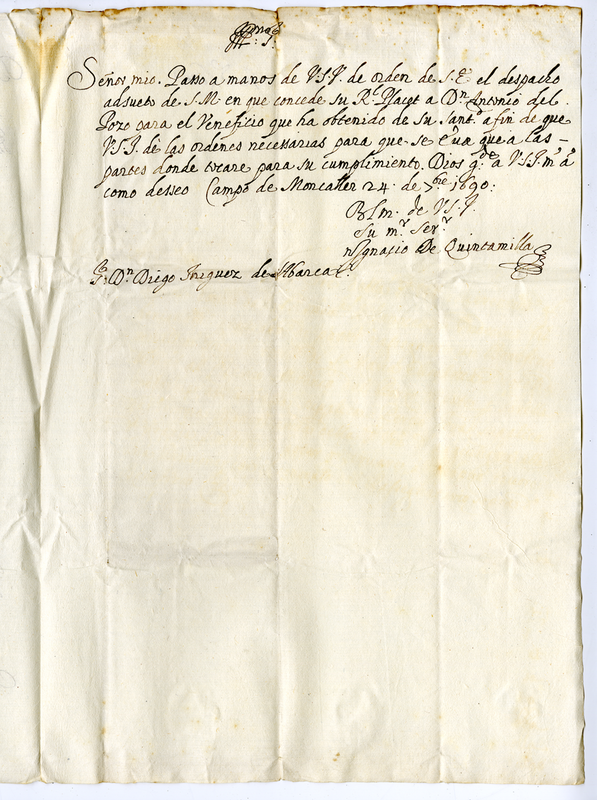 Yll.mo S.r
Señor mio. Passo a manos de V.S.I. de orden de S.E. el despacho
adjunto de S.M. en que concede su R.l Placet a D.n Antonio del
Pozo para el Veneficio que ha obtenido de su Sant.d a fin de que
V.S.I. dè las ordenes necessarias para que se
partes donde tocare para su cumplimiento. Dios g.de a V.S.I. m.s a.s
como desseo Campo de Moncaller 24. de 7bre 1690:
BLm. de V.S.I.
su m.r ser.r
Ygnacio De Quintanilla
S.r D.n Diego Iñiguez de Abarca.